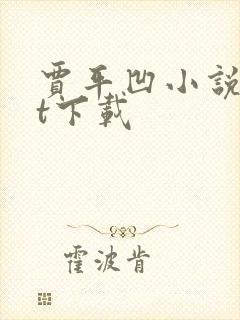 賈平凹小説
t下載
霍波肯